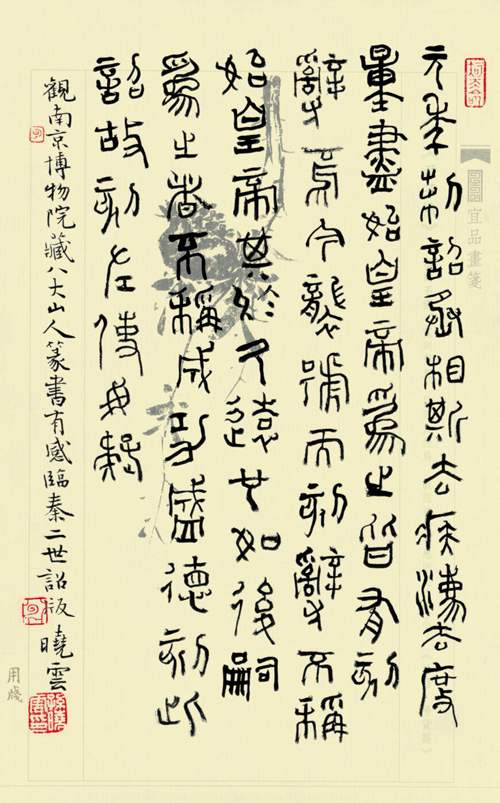 宜品畫箋
元年制詔丞相斯去疾灋度
量盡始皇帝爲之皆有刻
辭焉今襲號而刻辭不稱
始皇帝其於久遠也如後嗣
爲之者不稱成功盛德刻此
詔故刻左使毋疑
觀南京博物院藏八大山人篆書有感臨秦二世詔版 曉雲
用箋